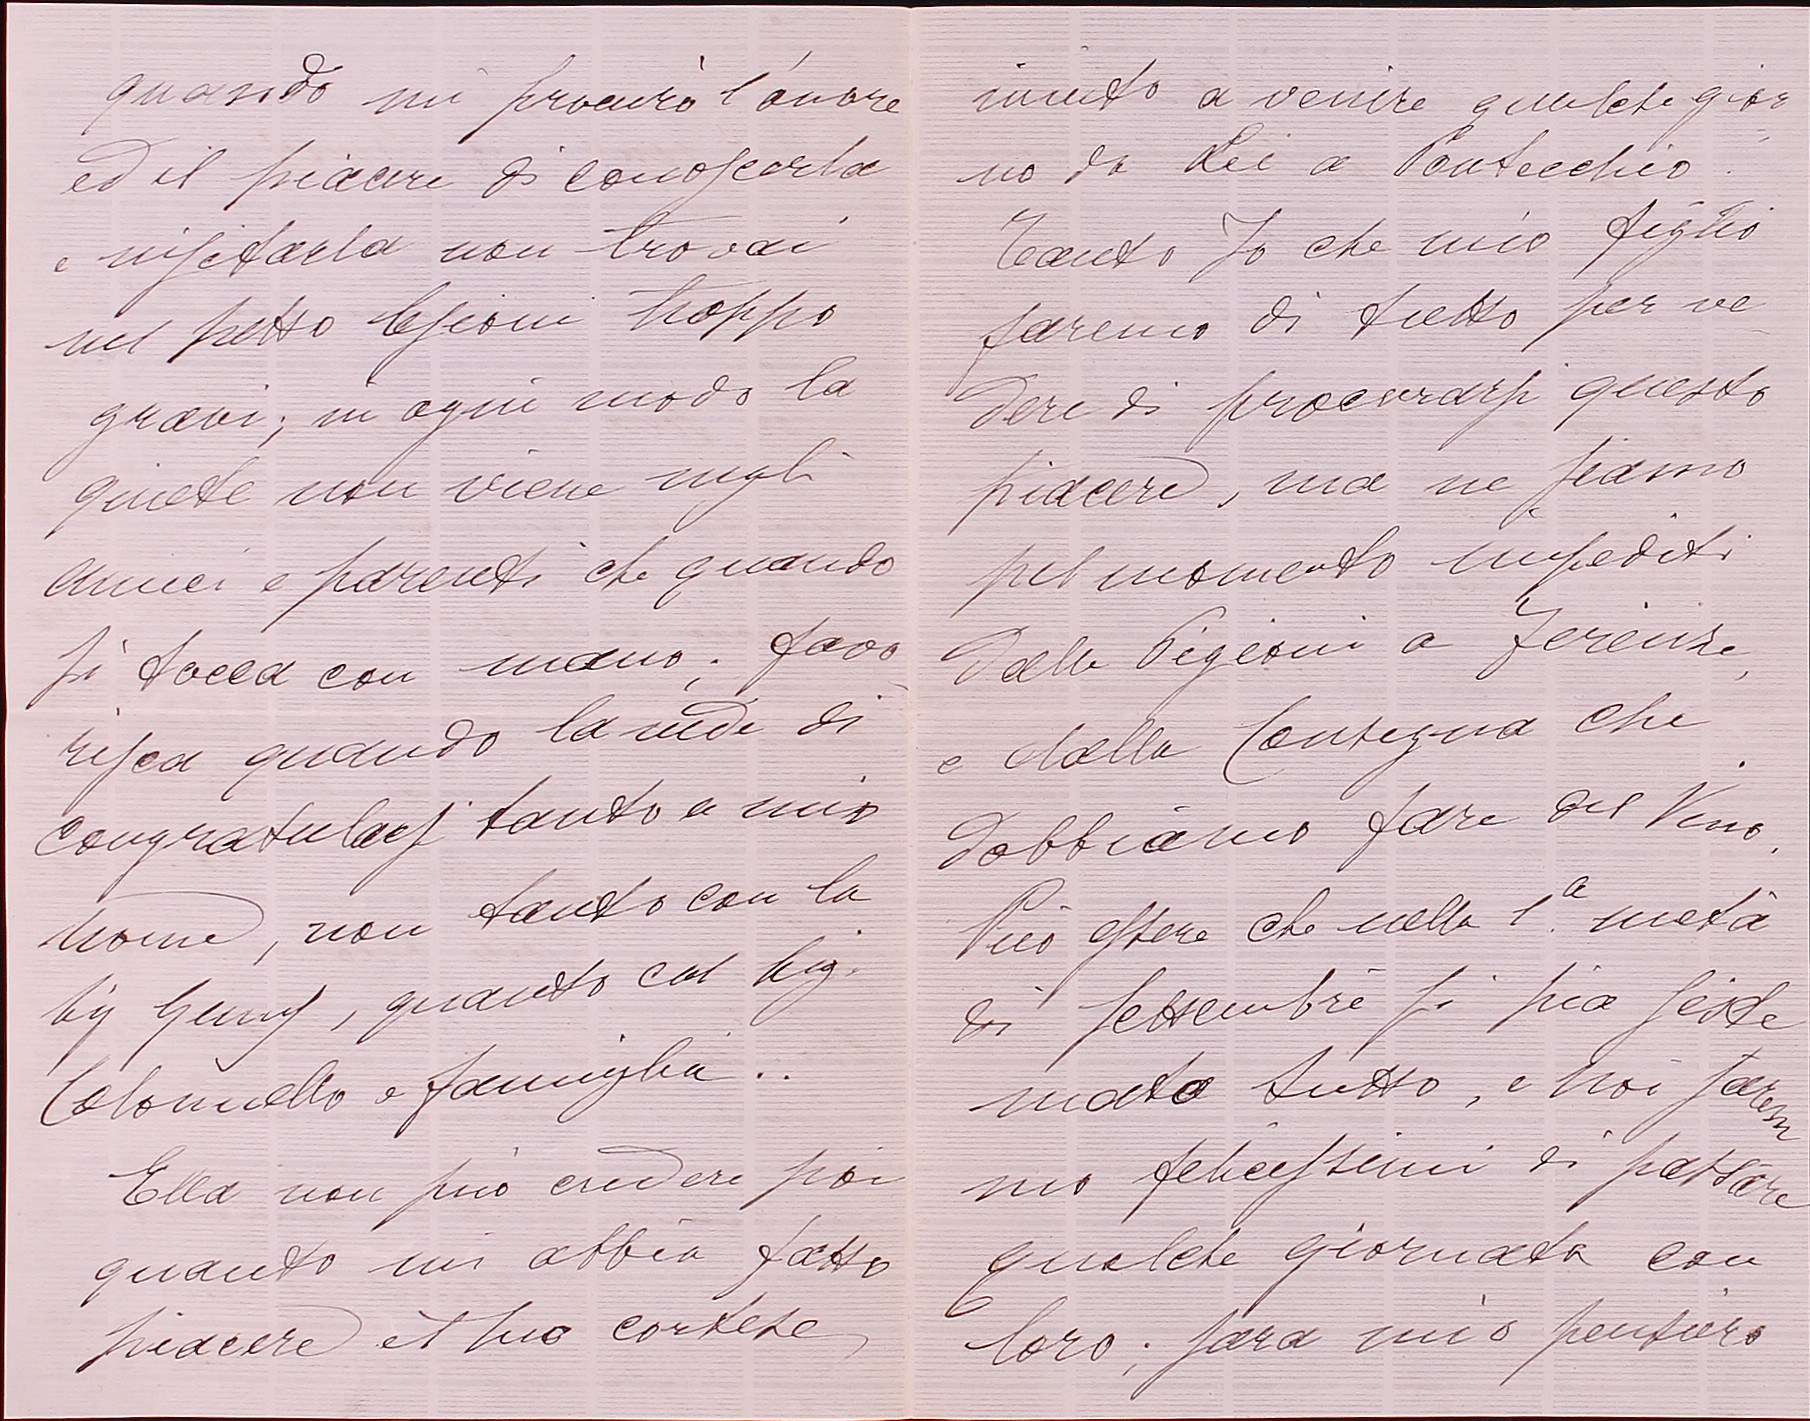 quando mi procurò l'onore
ed il piacere di conoscerla
e visitarla non trovai
nel petto lesioni troppo
gravi; in ogni modo la
quiete non viene negli
amici e parenti che quando
si tocca con mano; favo
risca quando la vede di
congratularsi tanto a mio
nome, non tanto con la
Sig, quanto col Sig.
Colonnello e famiglia..
Ella non può credere poi
quanto mi abbia fatto
piacere il suo cortese
invito a venire qualche gior
no da Lei a Pontecchio.
Tanto Io che mio figlio
faremo di tutto per ve
dere di procurarsi questo
piacere, ma ne siamo
pel momento impediti
dalle Pigioni a Firenze,
e dalla Consegna che
dobbiamo fare del Vino.
Può essere che nella 1.a metà
di Settembre si sia siste
mato tutto, e noi sarem
mo felicissimi di passare
qualche giornata con
loro; sarà mio pensiero